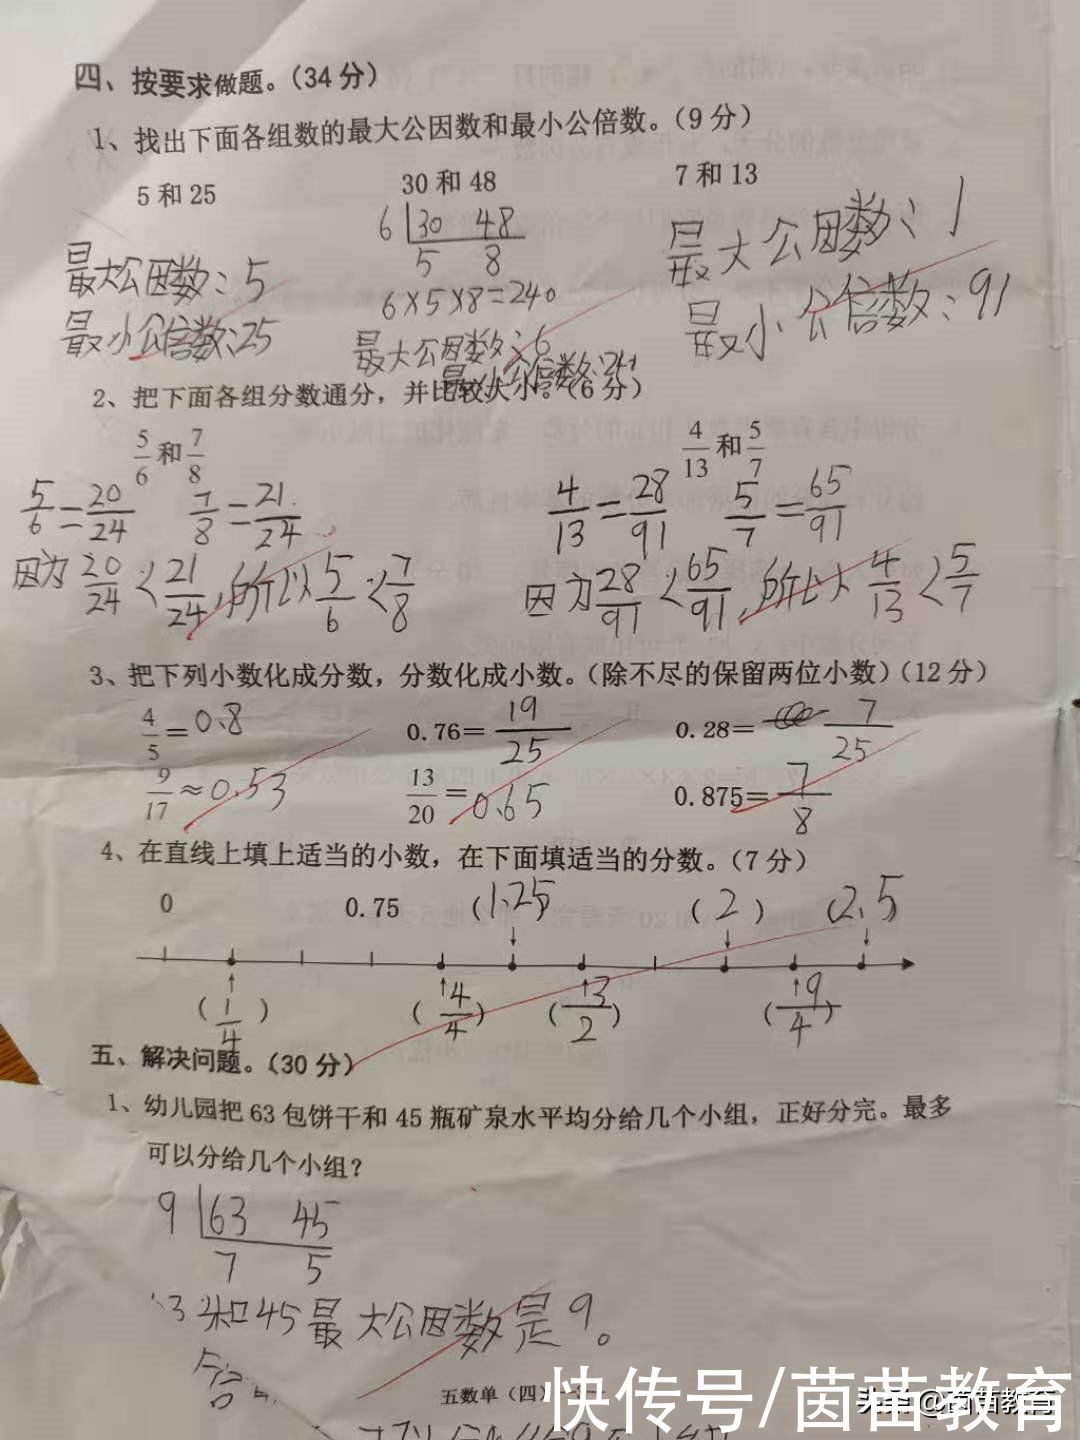 四、按要求做题。(34分)
1、找出下面各组数的最大公因数和最小公倍数。(9分)
5和25 30和48 7和13
6 30 48
5 8
6×5×8=240
最大公因数:5
最小公倍数:25
最大公因数:6
最小公倍数:240
最大公因数:1
最小公倍数:91
2、把下面各组分数通分，并比较大小。(6分)
5/6和7/8 4/13和5/7
5/6=20/24 7/8=21/24 4/13=28/91 5/7=65/91
因为20/24<21/24,所以5/6<7/8 因为28/91<65/91,所以4/13<5/7
3、把下列小数化成分数，分数化成小数。(除不尽的保留两位小数)(12分)
4/5=0.8 0.76=19/25 0.28=7/25
9/17≈0.53 13/20=0.65 0.875=7/8
4、在直线上填上适当的小数，在下面填适当的分数。(7分)
0 0.75 (1.25) (2) (2.5)
(1/4) (4/4) (3/2) (9/4)
五、解决问题。(30分)
1、幼儿园把63包饼干和45瓶矿泉水平均分给几个小组，正好分完。最多
可以分给几个小组?
9 63 45
7 5
3和45最大公因数是9。
答:
五数单(四)-3-
快传号/茵苗教育
头条@茵苗教育